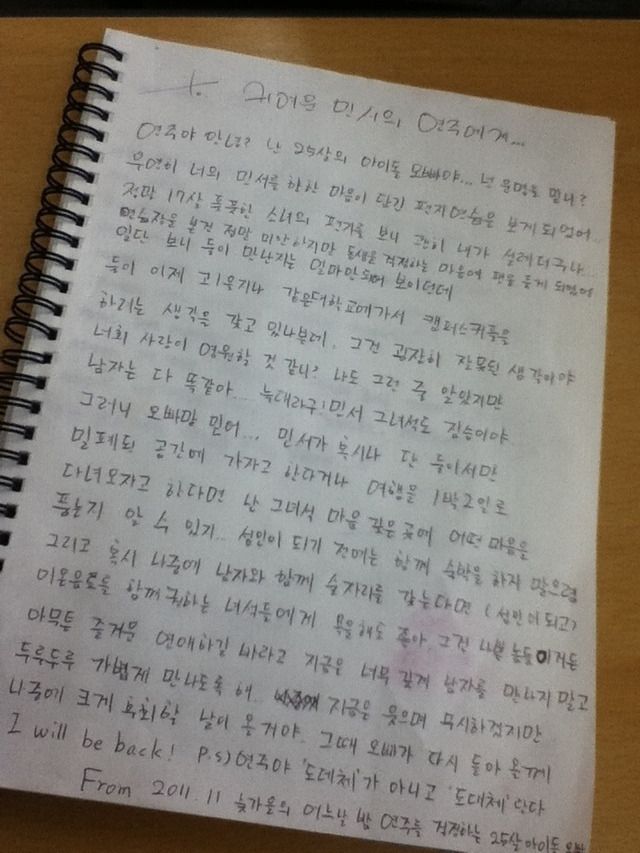 To. 귀여운 민서의 연주에게...
연주야 안녕? 난 25살의 아이돌 오빠야... 넌 운명을 믿니?
우연히 너의 민서를 향한 마음이 담긴 편지연습을 보게되었어..
정말 17살 풋풋한 소녀의 편지를 보니 괜히 내가 설레더구나...
연습장을 본건 정말 미안하지만 동생을 걱정하는 마음에 펜을 들게 되었어
일단 보니 둘이 만난지는 얼마안되어 보이던데
둘이 이제 고1을지나 같은대학교에가서 캠퍼스커플을
하려는 생각을 갖고 있나본데, 그건 굉장히 잘못된 생각이야
너희 사랑이 영원할 것 같니? 나도 그런 줄 알았지만
남자는 다 똑같아.... 늑대라구! 민서 그녀석도 짐승이야
그러니 오빠말 믿어... 민서가 혹시나 단 둘이서만
밀폐된 공간에 가자고 한다거나 여행을 1박2일로
다녀오자고 한다면 난 그녀석 마음 깊은 곳에 어떤 마음을
품는지 알 수 있지.. 성인이 되기 전에는 함께 숙박을 하지 말으렴
그리고 혹시 나중에 남자와 함께 술자리를 갖는다면 (성인이 되고)
이온음료를 함께 권하는 녀석들에게 욕을해도 좋아. 그건 나쁜 놈들이거든
아무튼 즐거운 연애하길 바라고 지금은 너무 깊게 남자를 만나지 말고
두루두루 가볍게 만나도록 해. 지금은 웃으며 무시하겠지만
나중에 크게 후회할 날이 올거야. 그때 오빠가 다시 돌아 올께
I will be back! P.S) 연주야 '도데체'가 아니고 '도대체'란다
From 2011.11 늦가을의 어느날 밤 연주를 걱정하는 25살 아이돌 오빠